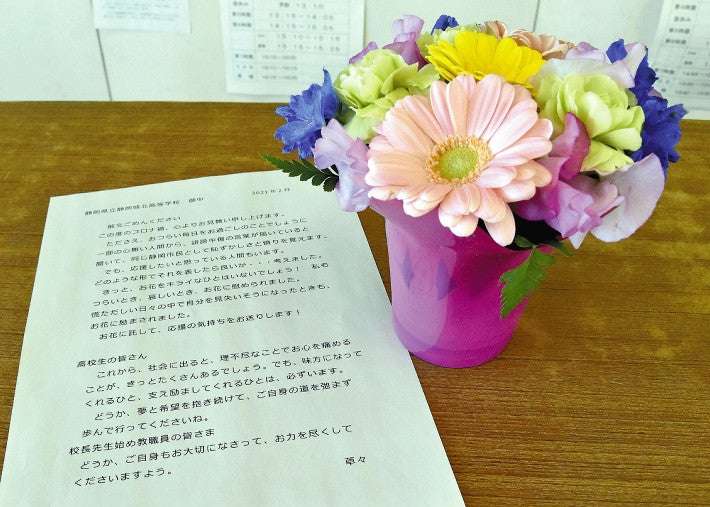 静岡県立静岡城北高等学校　御中
2021.8.23
前文ごめんください
この度のコロナ禍、心よりお見舞い申し上げます。
たださえ、おつらい毎日をお過ごしのことでしょうに
一部の心無い人間から、誹謗中傷の言葉が届いていると
聞いて、同じ静岡市民として恥ずかしさと憤りを覚えます。
でも、応援したいと思っている人間もいます。
どのような形でそれを表したら良いか・・・考えました。
きっと、お花をキライなひとはいないでしょう！　私も
つらいとき、哀しいとき、お花に慰められました。
慌ただしい日々の中で自分を見失いそうになったときも、
お花に励まされました。
お花に託して、応援の気持ちをお送りします！
高校生の皆さん
これから、社会に出ると、理不尽なことでお心を痛める
ことが、きっとたくさんあるでしょう。でも、味方になって
くれるひと、支え励ましてくれるひとは、必ずいます。
どうか、夢と希望を抱き続けて、ご自身の道を弛まず
歩んで行ってくださいね。
校長先生始め教職員の皆さま
どうか、ご自身もお大切になさって、お力を尽くして
くださいますよう。
草々